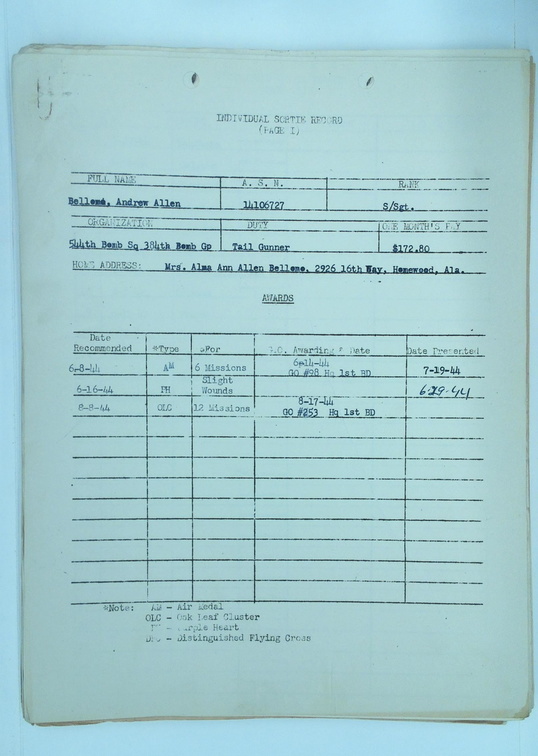 INDIVIDUAL SORTIE RECORD
(PAGE I)
FULL NAME A. S. N. RANK
Bellome, Andrew Allen 14106727 S/Sgt.
ORGANIZATION DUTY ONE MONTH'S PAY
544th Bomb Sq 384th Bomb Gp Tail Gunner $172.80
HOME ADDRESS: Mrs. Alma Ann Allen Bellome, 2926 16th Way, Homewood, Ala.
AWARDS
Date Recommended *Type *For G.O. Awarding & Date Date Presented
6-8-44 AM 6 Missions 6-14-44 GO #98 Hq 1st BD 7-19-44
6-16-44 PH Slight Wounds 6-29-44
8-8-44 OLC 12 Missions 8-17-44 GO #253 Hq 1st BD
*Note: AM - Air Medal
OLC - Oak Leaf Cluster
PH - Purple Heart
DFC - Distinguished Flying Cross